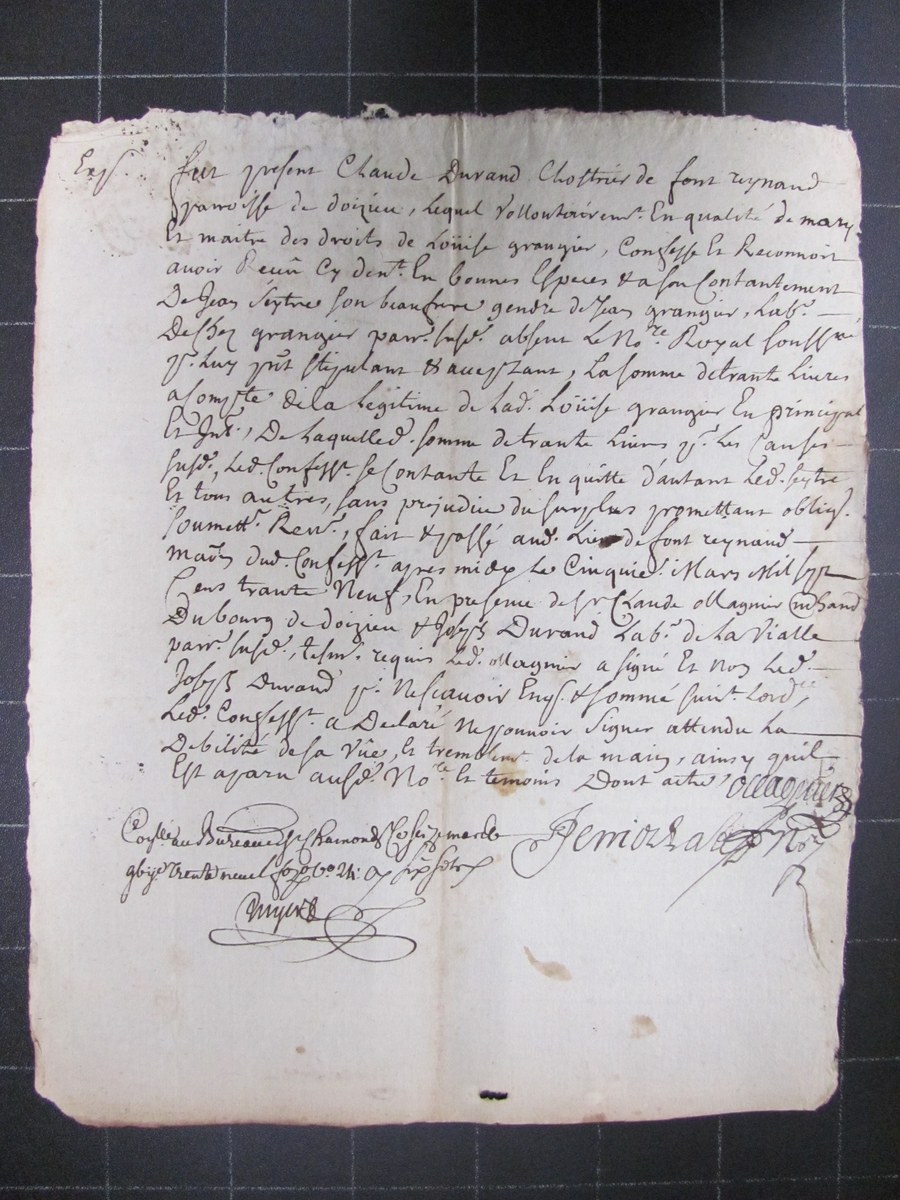 Exp.
fut present Claude Durand Chostrier de font reynaud
parroisse de doizieu, lequel vollontairemt. En qualité de mary
Et maitre des droits de Loüise grangier, Confesse Et Reconnoit
avoir Receu Cy devt. En bonnes Especes & a son Contantement
De Jean Seytre son beaufrere gendre de Jean grangier, Labr.
De Chez grangier parr. susd. absent le Nore. Royal soussné
pr. Luy pnt stipulant & acceptant, La somme de trante Livres
a Compte de la Legitime de Lad. Loüise grangier En principal
Et Int., De Laquelle d. somme de trante livres pr. Les Causes
susd., Led. Confesst. se Contante Et En quitte d'autant Led. seytre
Et tous autres, sans prejudice du surplus promettant oblig.
soumett. Renr., fait & passé aud. Lieu de font reynaud
maon dud. Confesst. apres midy Le Cinquie. Mars Mil sept
Cens trante Neuf, En presence de sr Claude Magnier
Du bourg de doizieu & Joseph Durand Labr. de La Vialle
parr. susd., tesm. requis Led. Magnier a signé Et non Led.
Joseph Durand pr. Ne scavoir Enq. & sommé suivt. Lordce,
Led. Confesst. a Declaré Ne pouvoir signer attendu La
Debilité de sa Vüe, Et tremblemt. de la main, ainsy quil
Est aparu ausd. Nore. Et temoins Dont acte, Magnier
Conllé au Bureau de St Chamond Ce seize mars
trente neuf